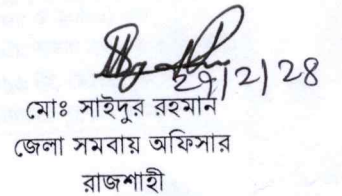 ২৭/২/২৪
মোঃ সাইদুর রহমান
জেলা সমবায় অফিসার
রাজশাহী